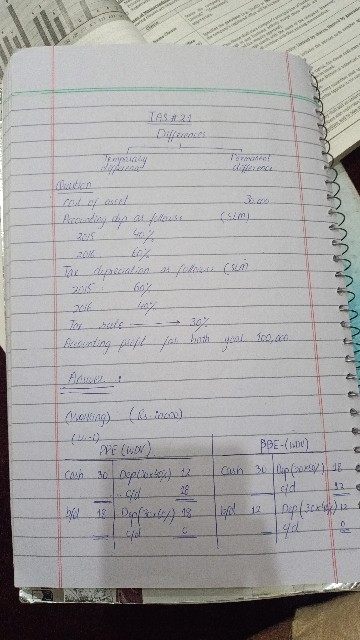 IAS # 21
Differences
Temporary difference
Permanent difference
Question
Cost of asset 30,000
Accounting dep as follows (SLM)
2015 40%
2016 60%
Tax depreciation as follows (SLM)
2015 60%
2016 40%
Tax rate → 30%
Accounting profit for both year 100,000
Answer :
(Working) (Rs. in 000)
(W-1)
PPE (WDV) PPE-(WDV)
Cash 30 Dep(30x40%) 12 Cash 30 Dep(30x60%) 18
c/d 18 c/d 12
b/d 18 Dep(30x60%) 18 b/d 12 Dep(30x40%) 12
c/d 0 c/d 0